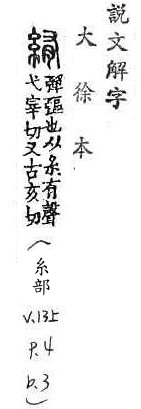 説文解字
大徐本
絠
彈彄也从糸有聲
弋宰切又古亥切
(糸部
V.13上
P.4
b.3)